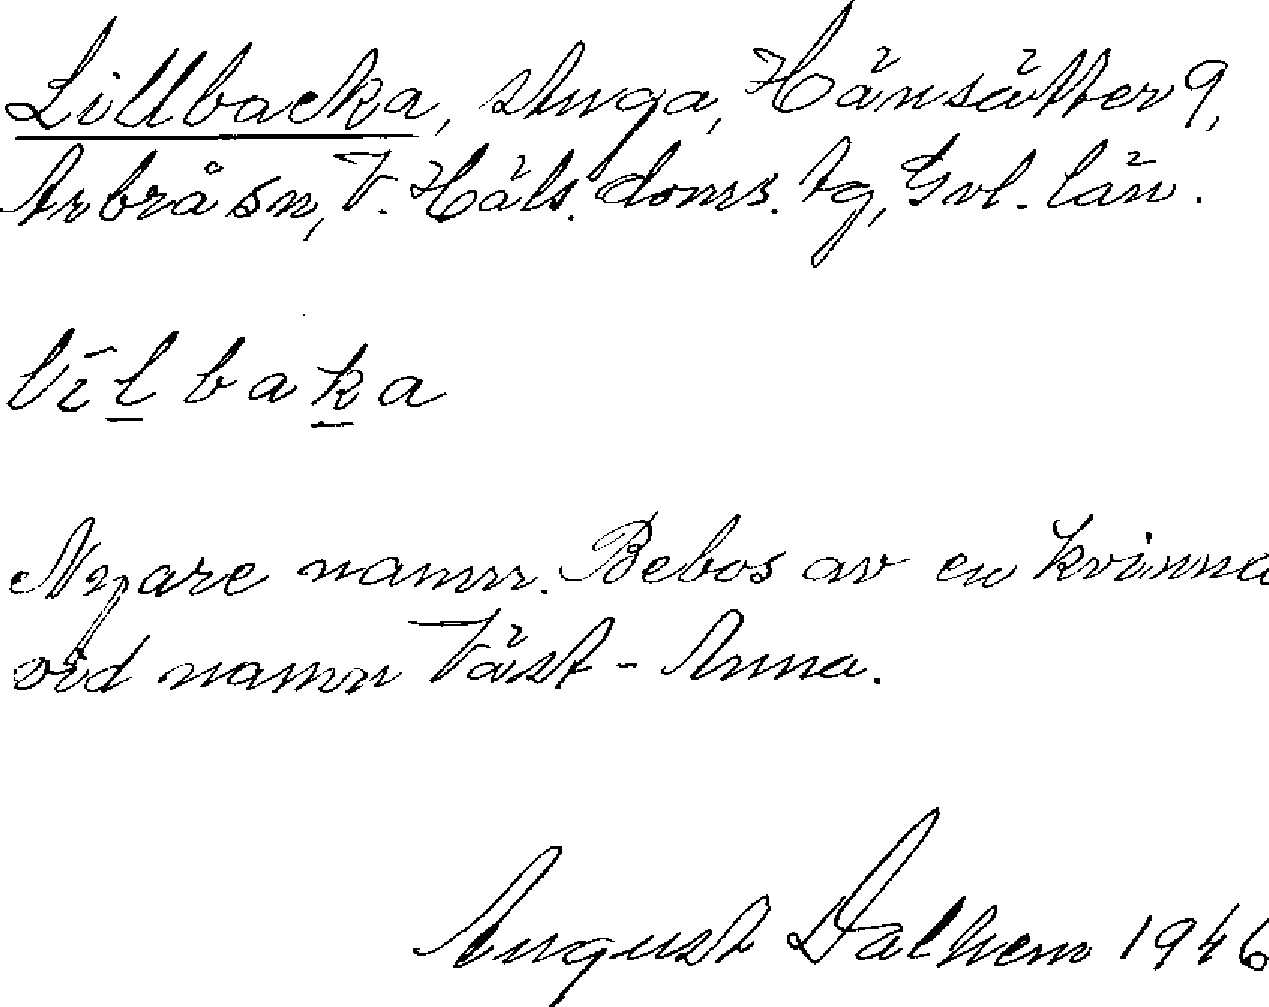 Lillbacka, stuga, Hänsätter 9,
Arbrå sn, V. Häls. doms. tg, Gvl. län.
lìl baka
Nyare namn. Bebos av en kvinna
vid namn Väst-Anna.
August Dalhem 1946